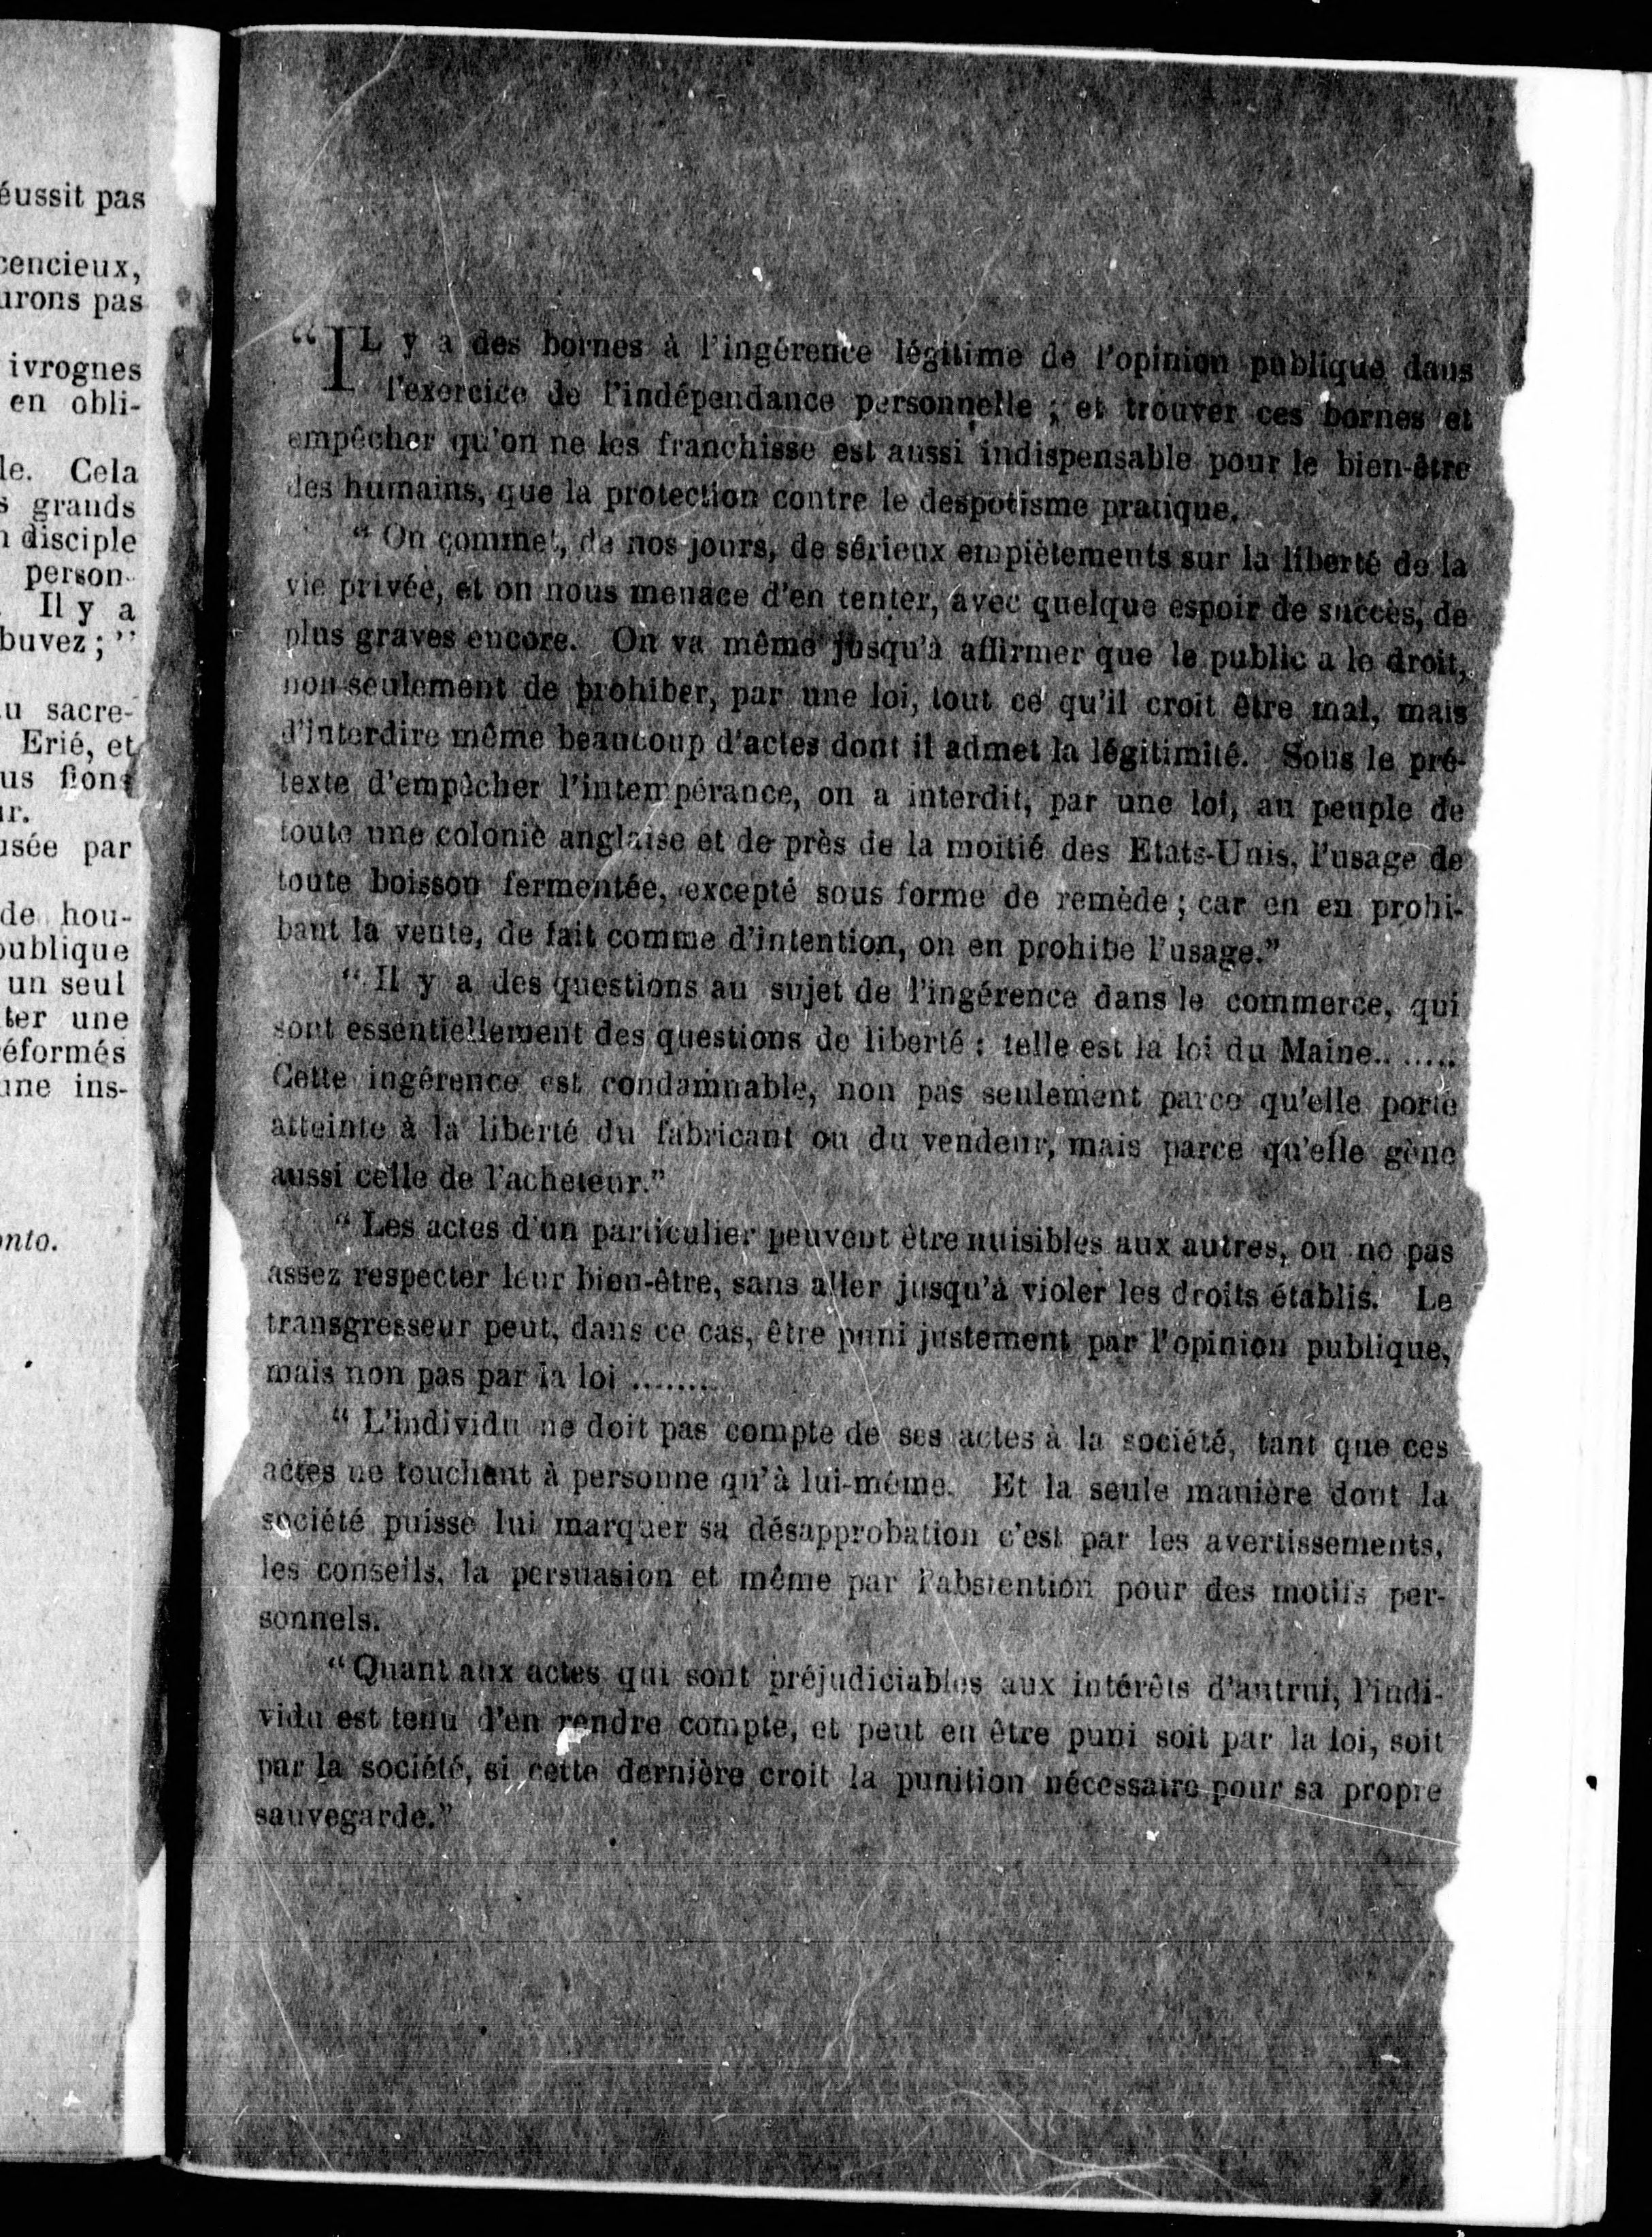 éussit pas
cencieux,
urons pas
ivrognes
en obli-
le. Cela
s grands
n disciple
person-
Il y a
buvez ;”
u sacre-
Erié, et
us
ur.
usée par
de hou-
publique
un seul
ter une
éformés
une ins-
onto.
“IL y a des bornes à l'ingérence légitime de l'opinion publique dans
l'exercice de l'indépendance personnelle ; et trouver ces bornes et
empêcher qu'on ne les franchisse est aussi indispensable pour le bien-être
des humains, que la protection contre le despotisme pratique.
“ On commet, de nos jours, de sérieux empiètements sur la liberté de la
vie privée, et on nous menace d'en tenter, avec quelque espoir de succès, de
plus graves encore. On va même jusqu'à affirmer que le public a le droit,
non-seulement de prohiber, par une loi, tout ce qu'il croit être mal, mais
d'interdire même beaucoup d'actes dont il admet la légitimité. Sous le pré-
texte d'empêcher l'intempérance, on a interdit, par une loi, au peuple de
toute une colonie anglaise et de près de la moitié des Etats-Unis, l'usage de
toute boisson fermentée, excepté sous forme de remède ; car en en prohi-
bant la vente, de fait comme d'intention, on en prohibe l'usage.”
“ Il y a des questions au sujet de l'ingérence dans le commerce, qui
sont essentiellement des questions de liberté : telle est la loi du Maine.. ......
Cette ingérence est condamnable, non pas seulement parce qu'elle porte
atteinte à la liberté du fabricant ou du vendeur, mais parce qu'elle gêne
aussi celle de l'acheteur.”
“ Les actes d'un particulier peuvent être nuisibles aux autres, ou ne pas
assez respecter leur bien-être, sans aller jusqu'à violer les droits établis. Le
transgresseur peut, dans ce cas, être puni justement par l'opinion publique,
mais non pas par la loi ........
“ L'individu ne doit pas compte de ses actes à la société, tant que ces
actes ne touchent à personne qu'à lui-même. Et la seule manière dont la
société puisse lui marquer sa désapprobation c'est par les avertissements,
les conseils, la persuasion et même par l'abstention pour des motifs per-
sonnels.
“ Quant aux actes qui sont préjudiciables aux intérêts d'autrui, l'indi-
vidu est tenu d'en rendre compte, et peut en être puni soit par la loi, soit
par la société, si cette dernière croit la punition nécessaire pour sa propre
sauvegarde.”